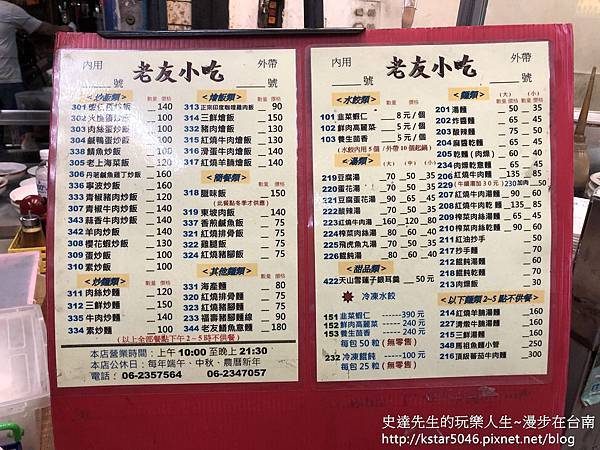 內用 老友小吃 外帶
號 號
<炒飯類> 數量 價格
301 蛋包炒飯 140
302 火腿蛋炒飯 100
303 肉絲蛋炒飯 100
304 鹹鴨蛋炒飯 100
338 鯖魚炒飯 150
305 老上海菜飯 120
306 丹老鹹魚雞丁炒飯 160
336 寧波炒飯 160
333 青椒豬肉炒飯 160
307 青椒牛肉炒飯 160
343 蒜香牛肉炒飯 160
342 羊肉炒飯 160
308 櫻花蝦炒飯 130
309 蛋炒飯 100
310 素炒飯 100
<炒麵類> 數量 價格
311 肉絲炒麵 120
312 三鮮炒麵 150
335 牛肉炒麵 140
334 素炒麵 100
<燴飯類> 數量 價格
313 正宗印度咖哩雞肉飯 90
314 三鮮燴飯 130
332 豬肉燴飯 130
315 紅燒牛肉燴飯 130
316 滑蛋牛肉燴飯 130
317 紅燒羊腩燴飯 130
<簡餐類> 數量 價格
318 臘味飯 150
(此餐點冬季才供應)
319 東坡肉飯 100
337 香煎鹹魚飯 75
321 紅燒排骨飯 75
322 雞腿飯 75
324 紅燒蹄膀飯 75
<其他麵類> 數量 價格
331 海產麵 80
320 紅燒排骨麵 75
323 紅燒蹄膀麵 75
339 福壽豬腳麵線 90
344 老友麵魚意麵 180
(以上全部餐點下午2~5時不供餐)
本店營業時間：上午10:00至晚上21:30
本店公休日：每年端午、中秋、農曆新年
電話：06-2357564 06-2347057
內用 老友小吃 外帶
號 號
<水餃類> 數量 價格
101 韭菜蝦仁 8元/個
102 鮮肉高麗菜 5元/個
103 養生茴香 5元/個
(水餃內用5個/外帶10個起鍋)
<湯類> (大) (中) (小)
219 豆腐湯 70 35
220 蛋花湯 70 35
221 豆腐蛋花湯 90 45
222 酸辣湯 70 35
223 紅燒牛肉湯 160 120 80
224 榨菜肉絲湯 100 60
225 飛虎魚丸湯 70 35
226 餛飩湯 80 60
<甜品類> 數量 價格
422 天山雪蓮子銀耳羹 50元
冷凍水餃
151 韭菜蝦仁 390元
152 鮮肉高麗菜 240元
153 養生茴香 240元
每包50粒(無零售)
232 冷凍餛飩 100元
每包25粒(無零售)
<麵類> (大) (小)
201 湯麵 50 35
202 炸醬麵 65 45
203 酸辣麵 65 45
204 麻醬乾麵 65 45
205 乾麵(肉燥) 60 40
234 肉燥乾意麵 65 45
206 紅燒牛肉麵 135 110
229 (牛鐵湯加30元) 230 加肉 50
207 紅燒牛肉湯麵 90 65
208 紅燒牛肉乾麵 135 105
209 榨菜肉絲湯麵 85 65
210 榨菜肉絲乾麵 85 65
211 紅油抄手 50
217 抄手麵 70
212 餛飩湯麵 60
218 餛飩乾麵 60
213 肉燥飯 30
<以下麵類2~5點不供餐>
214 紅燒羊腩湯麵 160
227 清燉牛腩湯麵 160
215 三鮮湯麵 160
348 馬祖魚麵小管 250
216 頂級蕃茄牛肉麵 300
史達先生的玩樂人生~漫步在台南
http://kstar5046.pixnet.net/blog